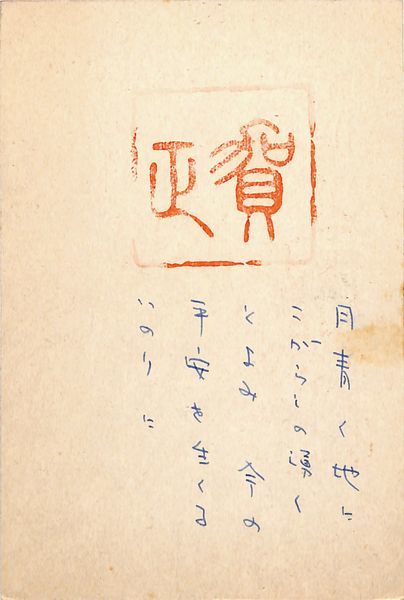 賀正
月青く地に
こがらしの湧く
とよみ 今の
平安を生くる
いのりに